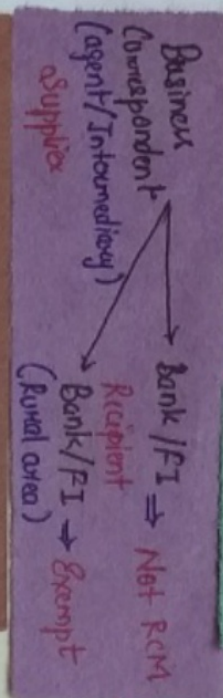 Business
Correspondent
(agent/Intermediary)
Supplier
Bank/FI ⇒ Not RCM
Recipient
Bank/FI → Exempt
(Rural area)